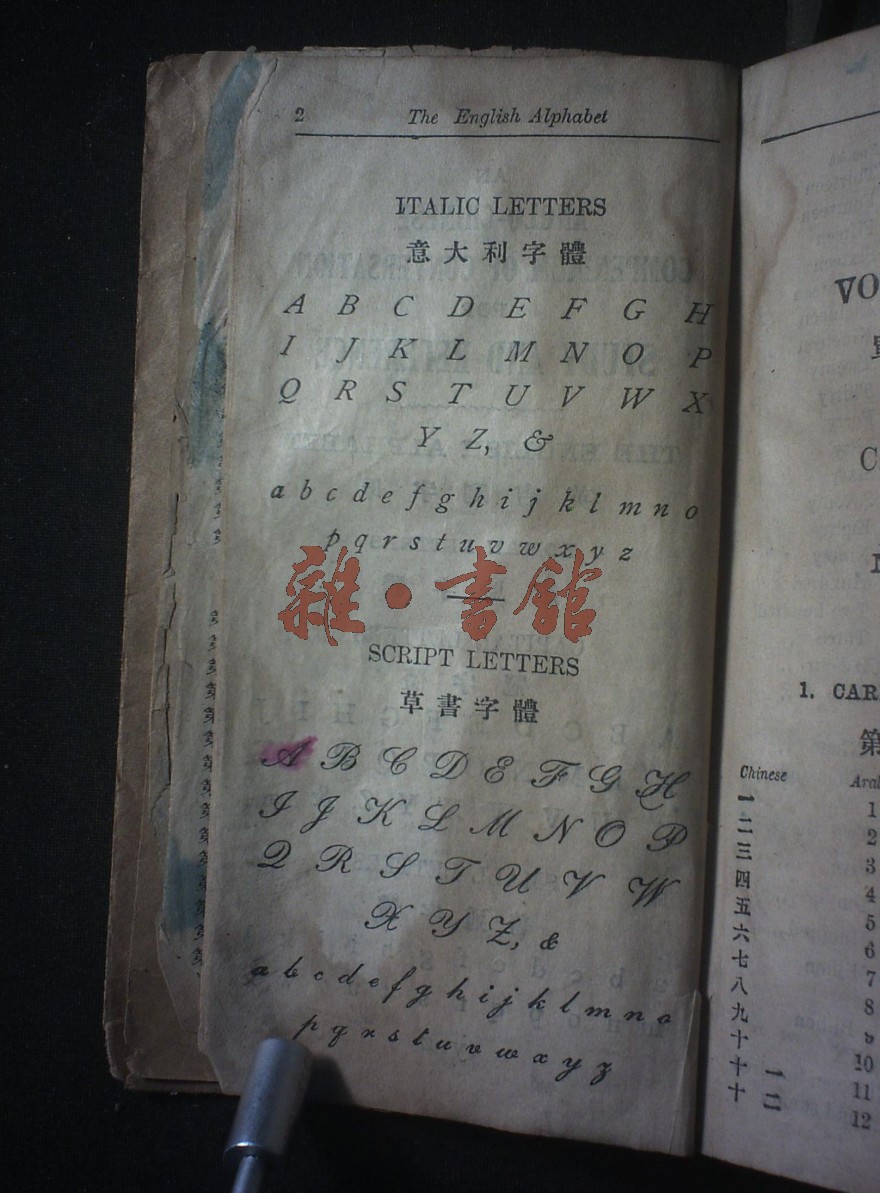 2 The English Alphabet
ITALIC LETTERS
意大利字體
A B C D E F G H
I J K L M N O P
Q R S T U V W X
Y Z, &
a b c d e f g h i j k l m n o
p q r s t u v w x y z
雜·書館
SCRIPT LETTERS
草書字體
A B C D E F G H
I J K L M N O P
Q R S T U V W
X Y Z, &
a b c d e f g h i j k l m n o
p q r s t u v w x y z
VO
C
1. CAR
第
Chinese Ara
一 1
二 2
三 3
四 4
五 5
六 6
七 7
八 8
九 9
十 10
十一 11
十二 12